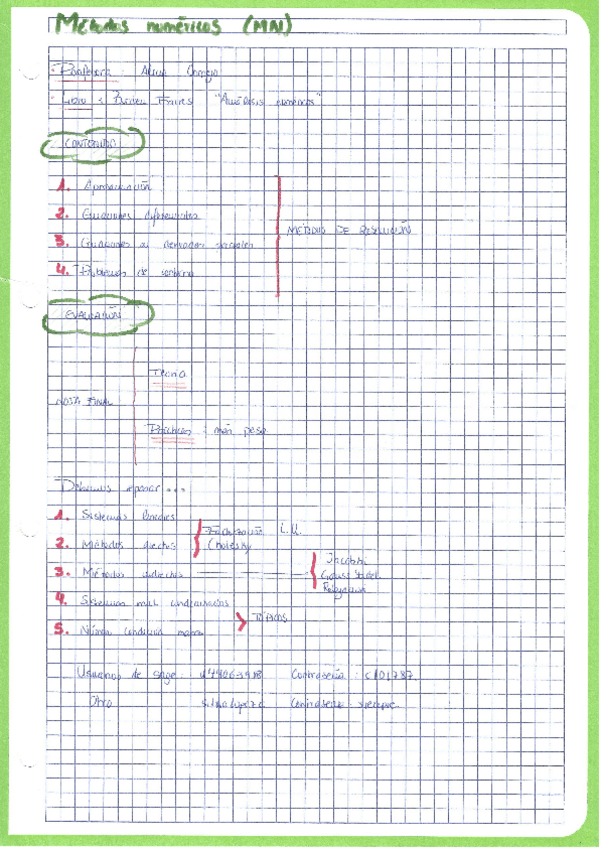 Métodos numéricos (MN)
Profesora: Alicia
Libro: Burden Faires "Análisis numérico"
CONTENIDO
1. Aproximación
2. Ecuaciones diferenciales
3. Ecuaciones en derivadas parciales
4. Problemas de
MÉTODO DE RESOLUCIÓN
EVALUACIÓN
NOTA FINAL
Teoría
Prácticas: más peso
Debemos repasar...
1. Sistemas lineales
2. Métodos directos
Factorización L.U.
Cholesky
3. Métodos indirectos
Jacobi
Gauss Seidel
Relajación
4. Sistemas mal condicionados
5. Número condición matriz
Usuarios de sage:
Contraseña:
Otro
Contraseña: siempre